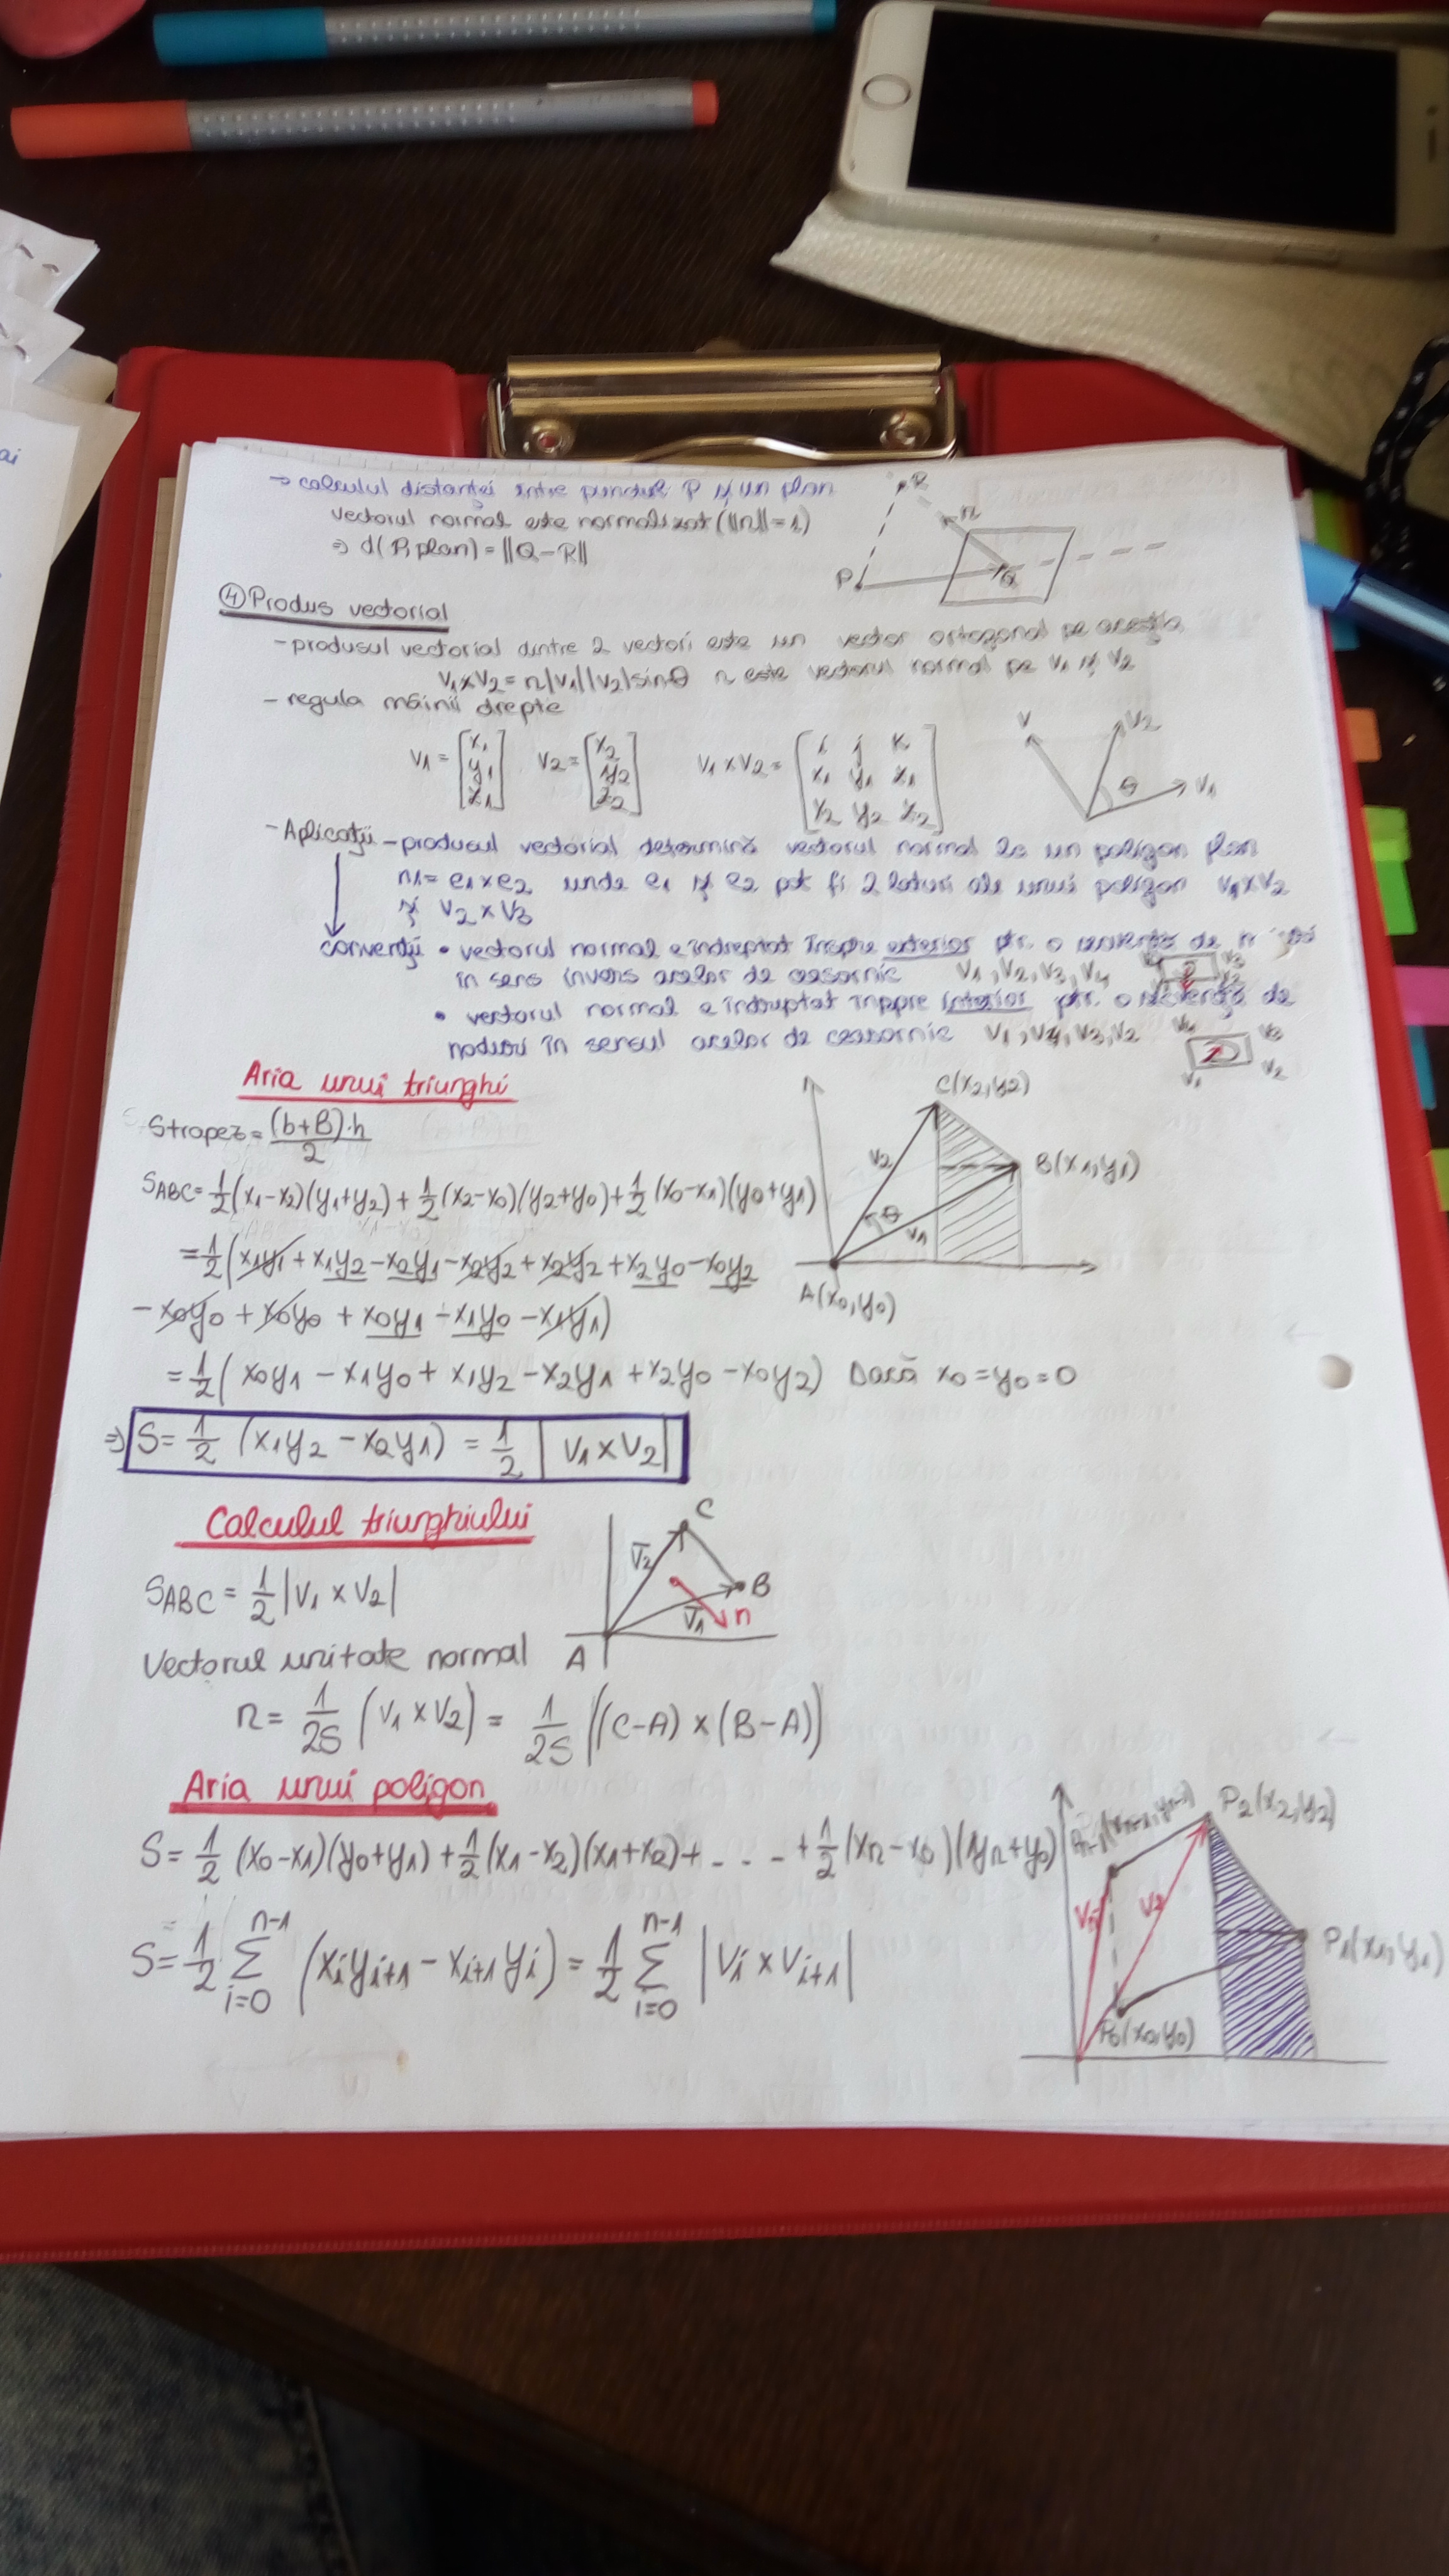 → calculul distanței între punctul P și un plan
vectorul normal este normalizat (||n|| = 1)
⇒ d(P, plan) = ||Q - R||
R
n
P
Q
④ Produs vectorial
- produsul vectorial dintre 2 vectori este un vector ortogonal pe aceștia
v1 x v2 = n|v1||v2|sinθ n este vectorul normal pe v1 și v2
- regula mâinii drepte
v1 = [x1 y1 z1] v2 = [x2 y2 z2] v1 x v2 = [i j k x1 y1 z1 x2 y2 z2]
v v2 θ v1
- Aplicații - produsul vectorial determină vectorul normal la un poligon plan
n1 = e1 x e2 unde e1 și e2 pot fi 2 laturi ale unui poligon v1 x v2
și v2 x v3
convenții • vectorul normal e îndreptat înspre exterior ptr. o secvență de
în sens invers acelor de ceasornic v1, v2, v3, v4
• vectorul normal e îndreptat înspre interior ptr. o secvență de
noduri în sensul acelor de ceasornic v1, v4, v3, v2
v4 v3
v1 v2
Aria unui triunghi
Strapez = (b+B)·h / 2
SABC = 1/2 (x1-x2)(y1+y2) + 1/2 (x2-x0)(y2+y0) + 1/2 (x0-x1)(y0+y1)
= 1/2 (x1y1 + x1y2 - x2y1 - x2y2 + x2y2 + x2y0 - x0y2
- x0y0 + x0y0 + x0y1 - x1y0 - x1y1)
= 1/2 ( x0y1 - x1y0 + x1y2 - x2y1 + x2y0 - x0y2) Dacă x0 = y0 = 0
⇒ S = 1/2 (x1y2 - x2y1) = 1/2 | v1 x v2 |
C(x2,y2)
B(x1,y1)
v2
θ
v1
A(x0,y0)
Calculul triunghiului
SABC = 1/2 |v1 x v2|
Vectorul unitate normal
n = 1/2S (v1 x v2) = 1/2S ((C-A) x (B-A))
C
v2
B
v1 n
A
Aria unui poligon
S = 1/2 (x0-x1)(y0+y1) + 1/2 (x1-x2)(x1+x2) + . . . + 1/2 (xn-x0)(yn+y0)
S = 1/2 Σ i=0 n-1 (xiyi+1 - xi+1yi) = 1/2 Σ i=0 n-1 |vi x vi+1|
Pn-1(xn-1,yn-1)
P2(x2,y2)
v2
P1(x1,y1)
P0(x0,y0)